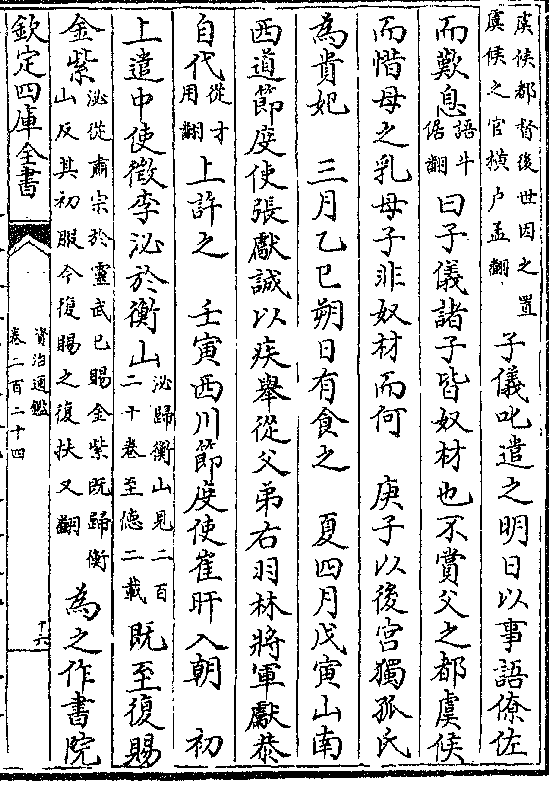 虞侯都督後世因之置
虞侯之官横户孟翻
子儀叱遣之明日以事語僚佐
而歎息語斗
倨翻曰子儀諸子皆奴材也不賞父之都虞候
而惜母之乳母子非奴材而何　庚子以後宫獨孤氏
為貴妃　三月乙巳朔日有食之　夏四月戊寅山南
西道節度使張獻誠以疾舉從父弟右羽林將軍獻恭
自代從才
用翻上許之　壬寅西川節度使崔旰入朝　初
上遣中使徵李泌於衡山泌歸衡山見二百
二十卷至德二載既至復賜
金紫泌從肅宗於靈武已賜金紫既歸衡
山反其初服今復賜之復扶又翻為之作書院
欽定四庫全書
資治通鑑
卷二百二十四
十六